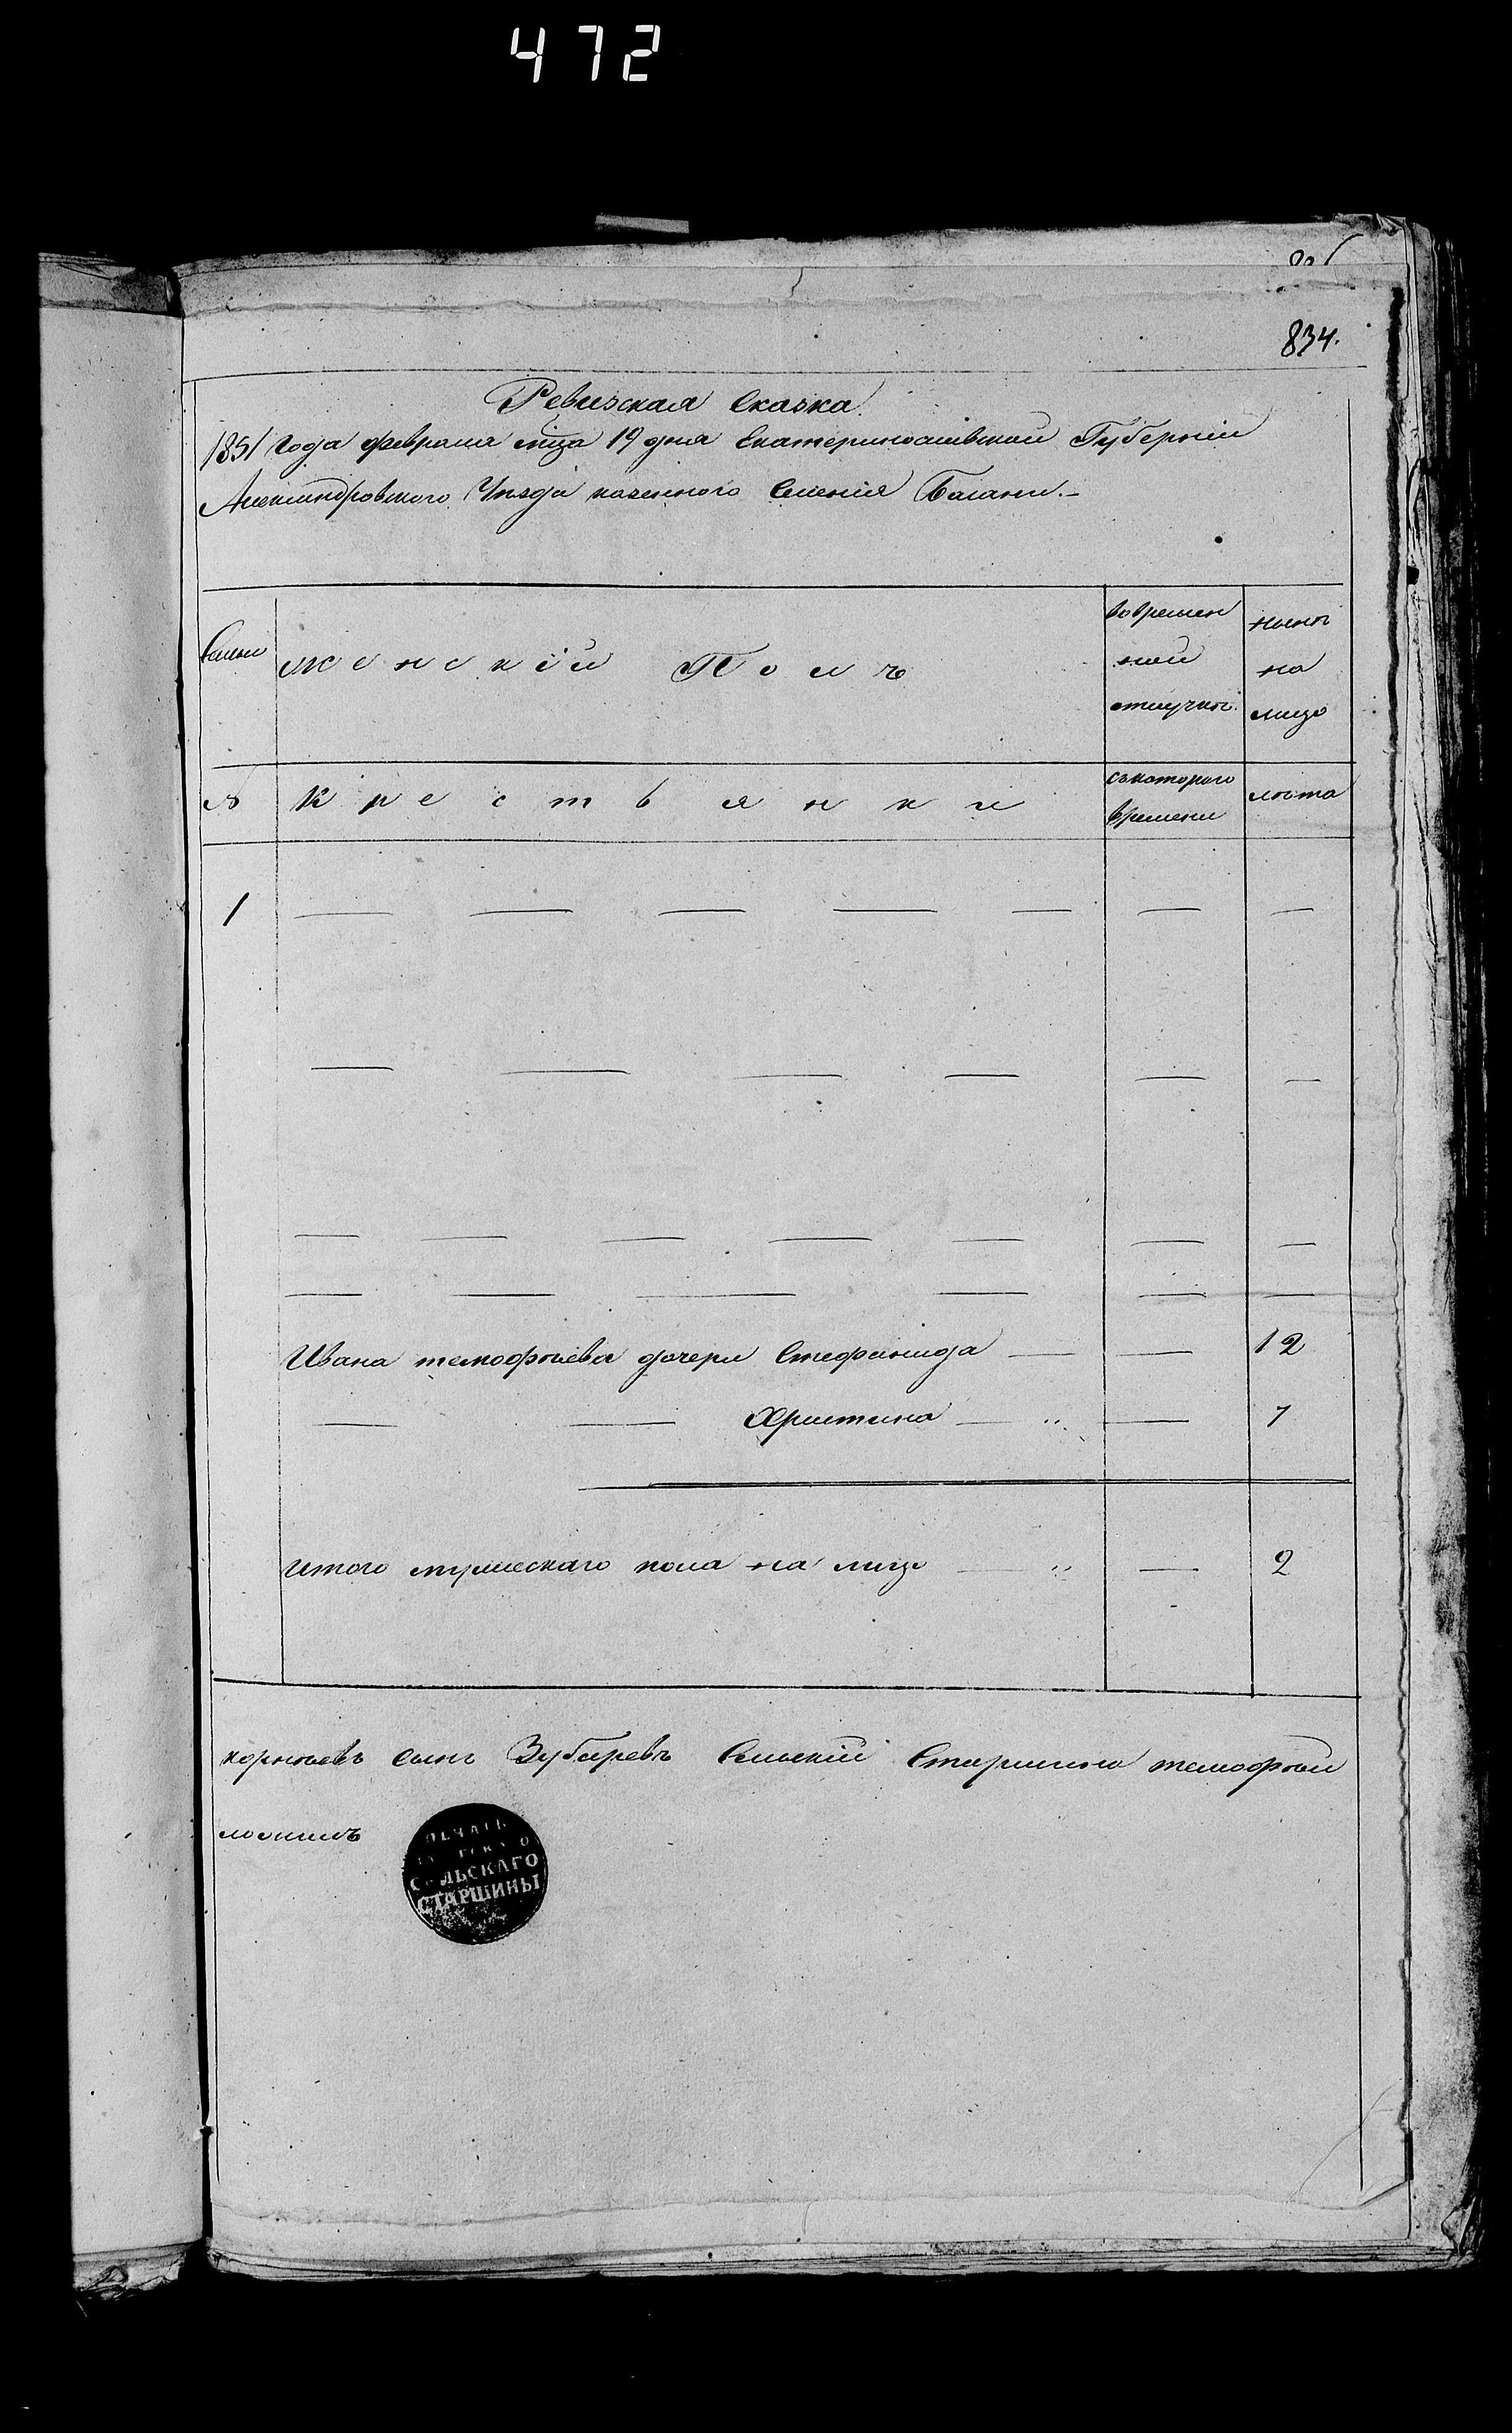 472
834.
Ревизская Сказка.
1851 года февраля мца 19 дня Екатеринославской Губерніи
Александровского Уѣзда казенного Селенія Балани.-
Семьи
Женскій Полъ
во времен
ной
отлучкѣ.
нынѣ
на
лицо
№
Крестьянки
съ котораго
времени
лѣта
1 — — — — — — —
— — — — — —
— — — — — — —
— — — — — —
Ивана темофѣева дочери Стефанида — — 12
— — Христина — „ — 7
Итого мужескаго пола на лицо — „ — 2
корнѣевъ сынъ Зубаревъ Сельскій Старшина темофѣй
ПЕЧАТЬ
СЕЛЬСКАГО
СТАРШИНЫ